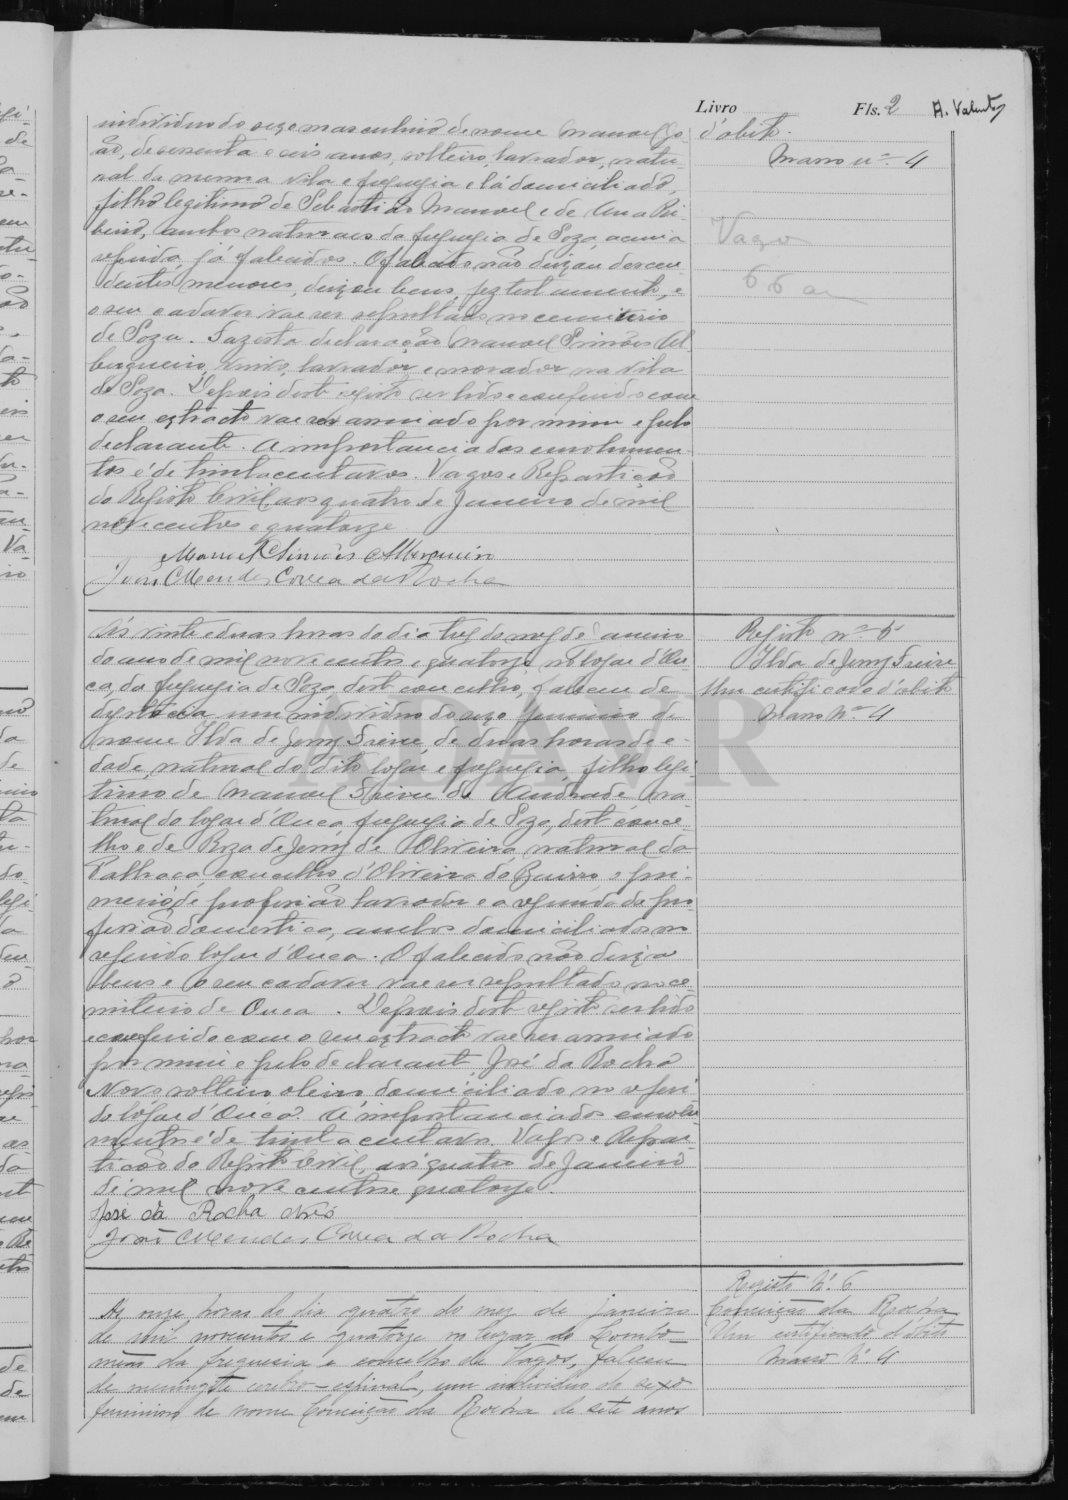 Livro
Fls. 2
A. Valente
individuo do sexo masculino de nome Manoel Jo-
ão, de sessenta e seis anos, solteiro, lavrador, natu-
ral da mesma vila e freguesia e lá domiciliado,
filho legitimo de Sebastião Manoel e de Ana Ri-
beiro, ambos naturaes da freguesia de Soza, acima
referida, já falecidos. O falecido não deixou descen-
dentes menores, deixou bens, fez testamento, e
o seu cadaver vae ser sepultado no cemiterio
de Soza. Faz esta declaração Manoel Simões Al-
bergueiro, lavrador e morador na vila
de Soza. Depois deste registo ser lido e conferido com
o seu extracto vae ser assinado por mim e pelo
declarante. A importancia dos emolumen-
tos é de trinta centavos. Vagos e Repartição
do Registo Civil, aos quatro de Janeiro de mil
nove centos e quatorze
Manuel Simões
João Mendes Correa da Rocha
d'obito.
Masso nº 4
Vagos
66 an
Ás vinte e duas horas do dia tres do mes de Janeiro
do ano de mil nove centos e quatorze no logar d'Ou-
ca, da freguesia de Soza, deste concelho, faleceu de
um individuo do sexo feminino de
nome Ilda de Jesus Freire, de duas horas de e-
dade, natural do dito logar e freguesia, filho legi-
timo de Manoel Freire de Andrade na-
tural do logar d'Ouca, freguesia de Soza, deste conce-
lho e de Roza de Jesus de Oliveira, natural da
Palhaça, concelho d'Oliveira do Bairro, o pri-
meiro de profissão lavrador e a segunda de pro-
fissão domestica, ambos domiciliados no
referido logar d'Ouca. O falecido não deixa
bens e o seu cadaver vae ser sepultado no ce-
miterio de Ouca. Depois deste registo ser lido
e conferido com o seu extracto vae ser assinado
por mim e pelo declarante José da Rocha
Novo, solteiro, oleiro, domiciliado no referi-
do logar d'Ouca. A importancia dos emolu-
mentos é de trinta centavos. Vagos e Repar-
tição do Registo Civil, aos quatro de Janeiro
de mil nove centos e quatorze.
José da Rocha Novo
João Mendes Correa da Rocha
Registo nº 5
Ilda de Jesus Freire
Um certificado d'obito
Masso Nº 4
ADAVR
Ás onze horas do dia quatro do mez de janeiro
de mil novecentos e quatorze no lugar do Lombo-
meão da freguesia e concelho de Vagos, faleceu
de meningite cerebro-espinal, um individuo do sexo
feminino de nome Conceição da Rocha de sete anos
Registo Nº 6
Conceição da Rocha
Um certificado d'obito
Masso Nº 4